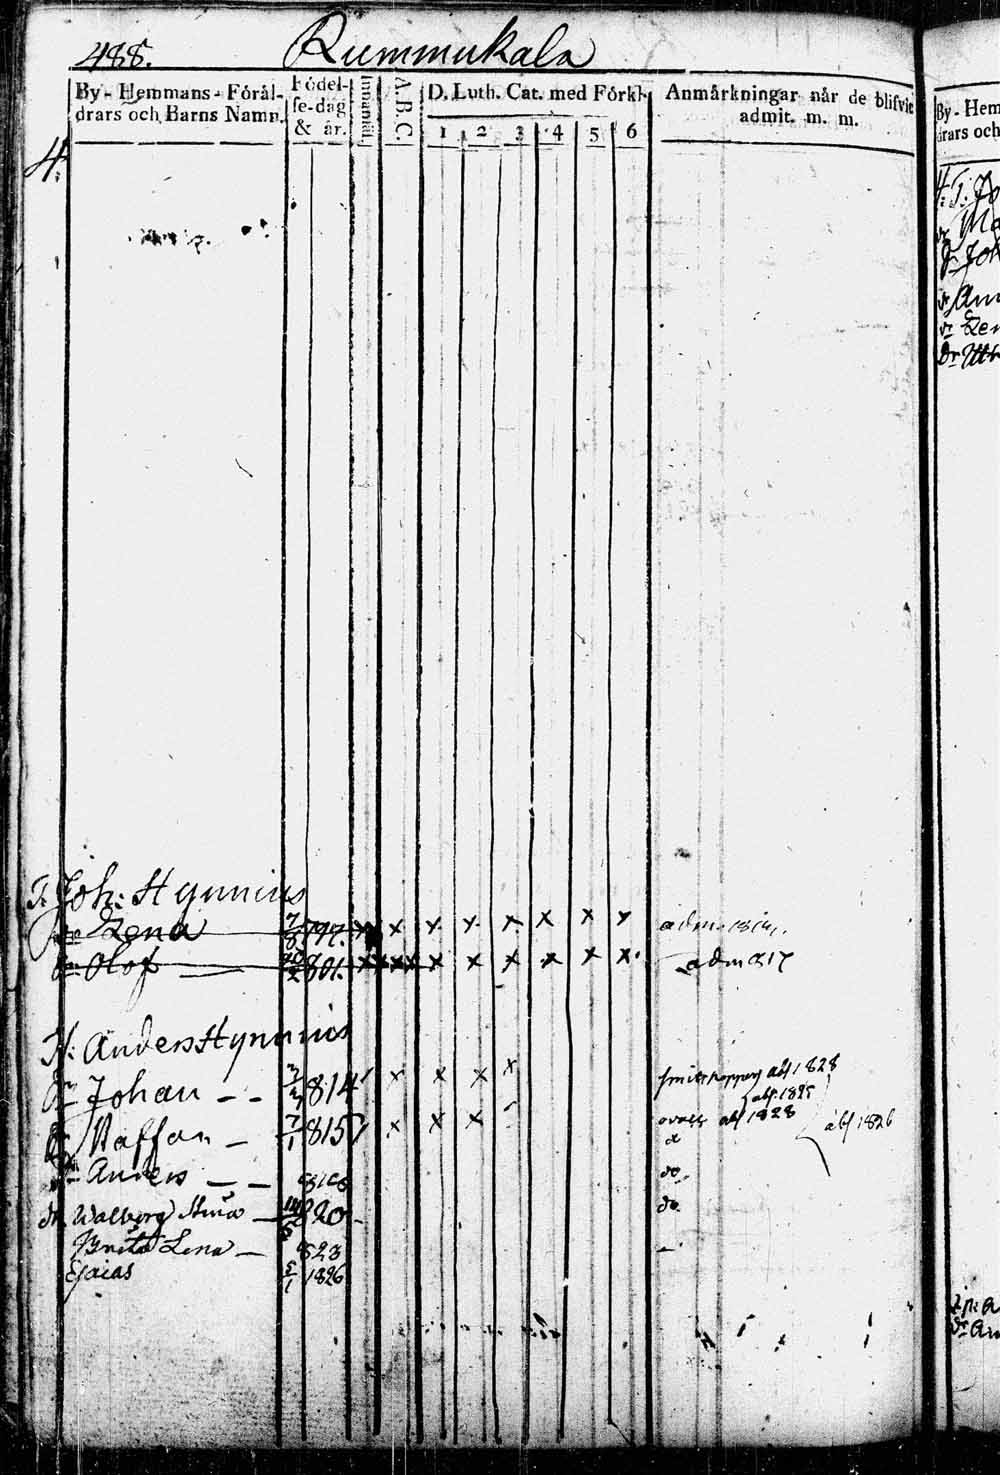 488. Rummukala
By- Hemmans- Föräl-
drars och Barns Namn.
Födel-
se-dag
& år.
Innantill
A.B.C.
D. Luth. Cat. med Förkl.
1 2 3 4 5 6
Anmärkningar når de blifvit
admit. m. m.
4.
T. Joh: Hynnius
Dr Lena 7/8 797. x x x x x x x x adm. 1814.
Sn Olof 801. x x x x x x x x adm 817
N: Anders Hynnius
Sn Johan - - 814 x x x x abs 1828
abs. 1825
Sn Staffan - 7/1 815 x x x abs 1828
abs 1826
Sn Anders - - 818 do
dr Walborg Stina - 820 do
Brita Lena - 823 -
Esaias 5/1 1826
By- Hem
drars och
4. T. Jo
Ma
Joh
An
Len